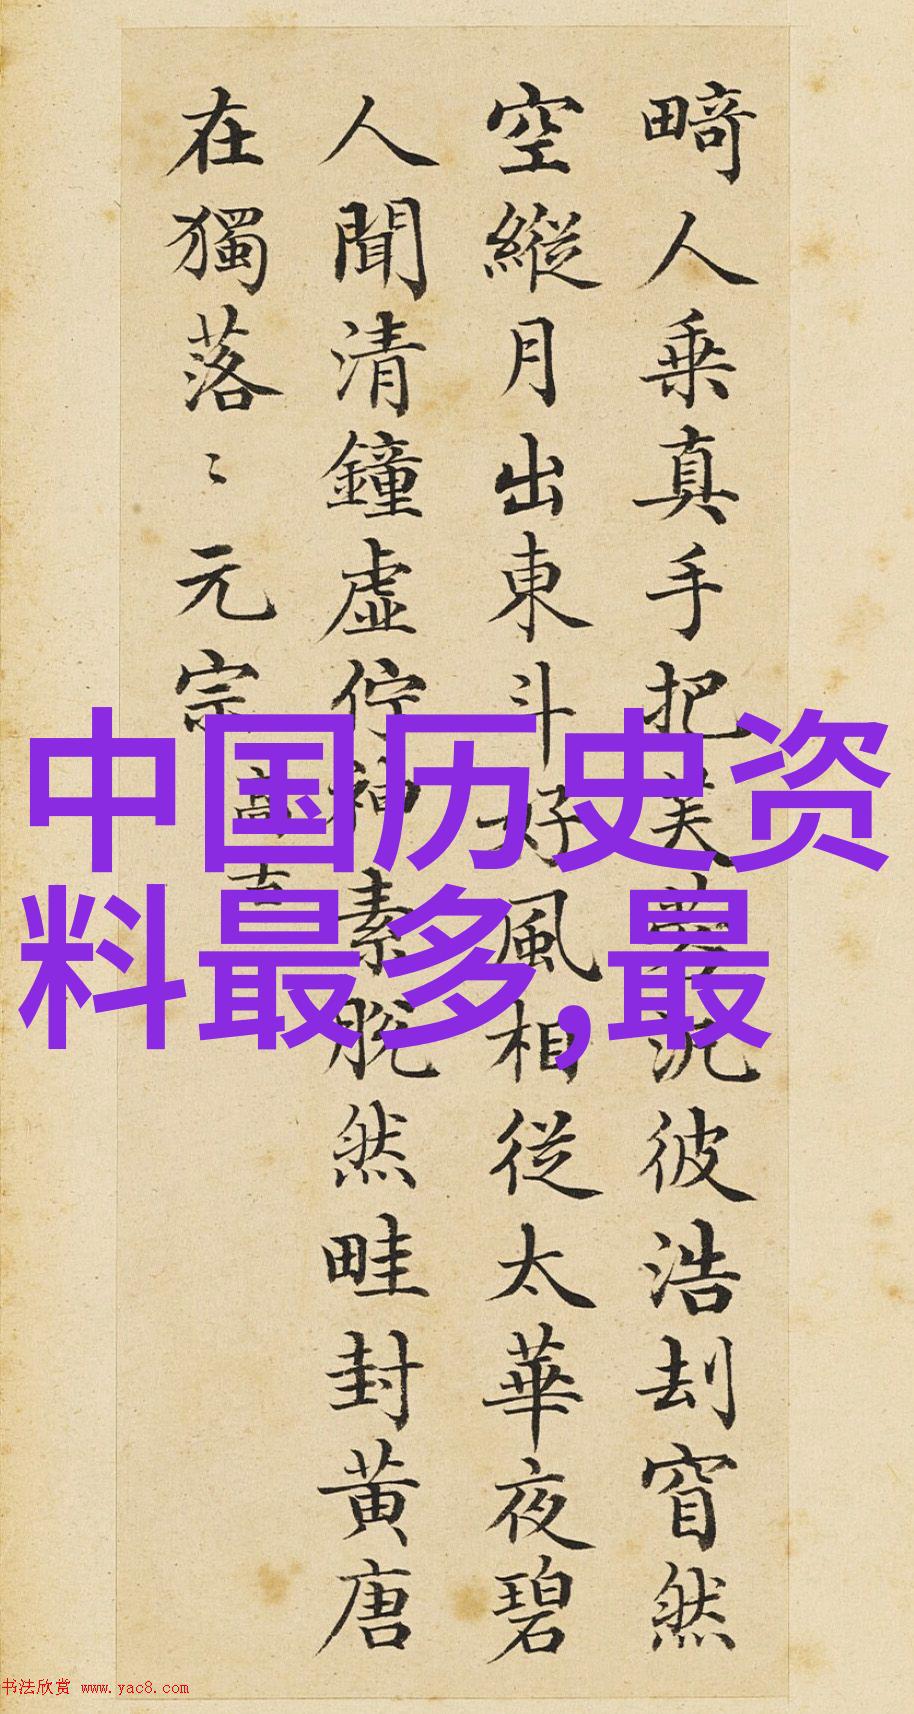 畸人乗真手把芙蓉汎彼浩刦窅然
空縱月出東斗好風相從太華夜碧
人聞清鐘虚佇神素脱然畦封黄唐
在獨落〻元宗 高古
中国历史资
料最多,最
书法欣赏 www.yac8.com